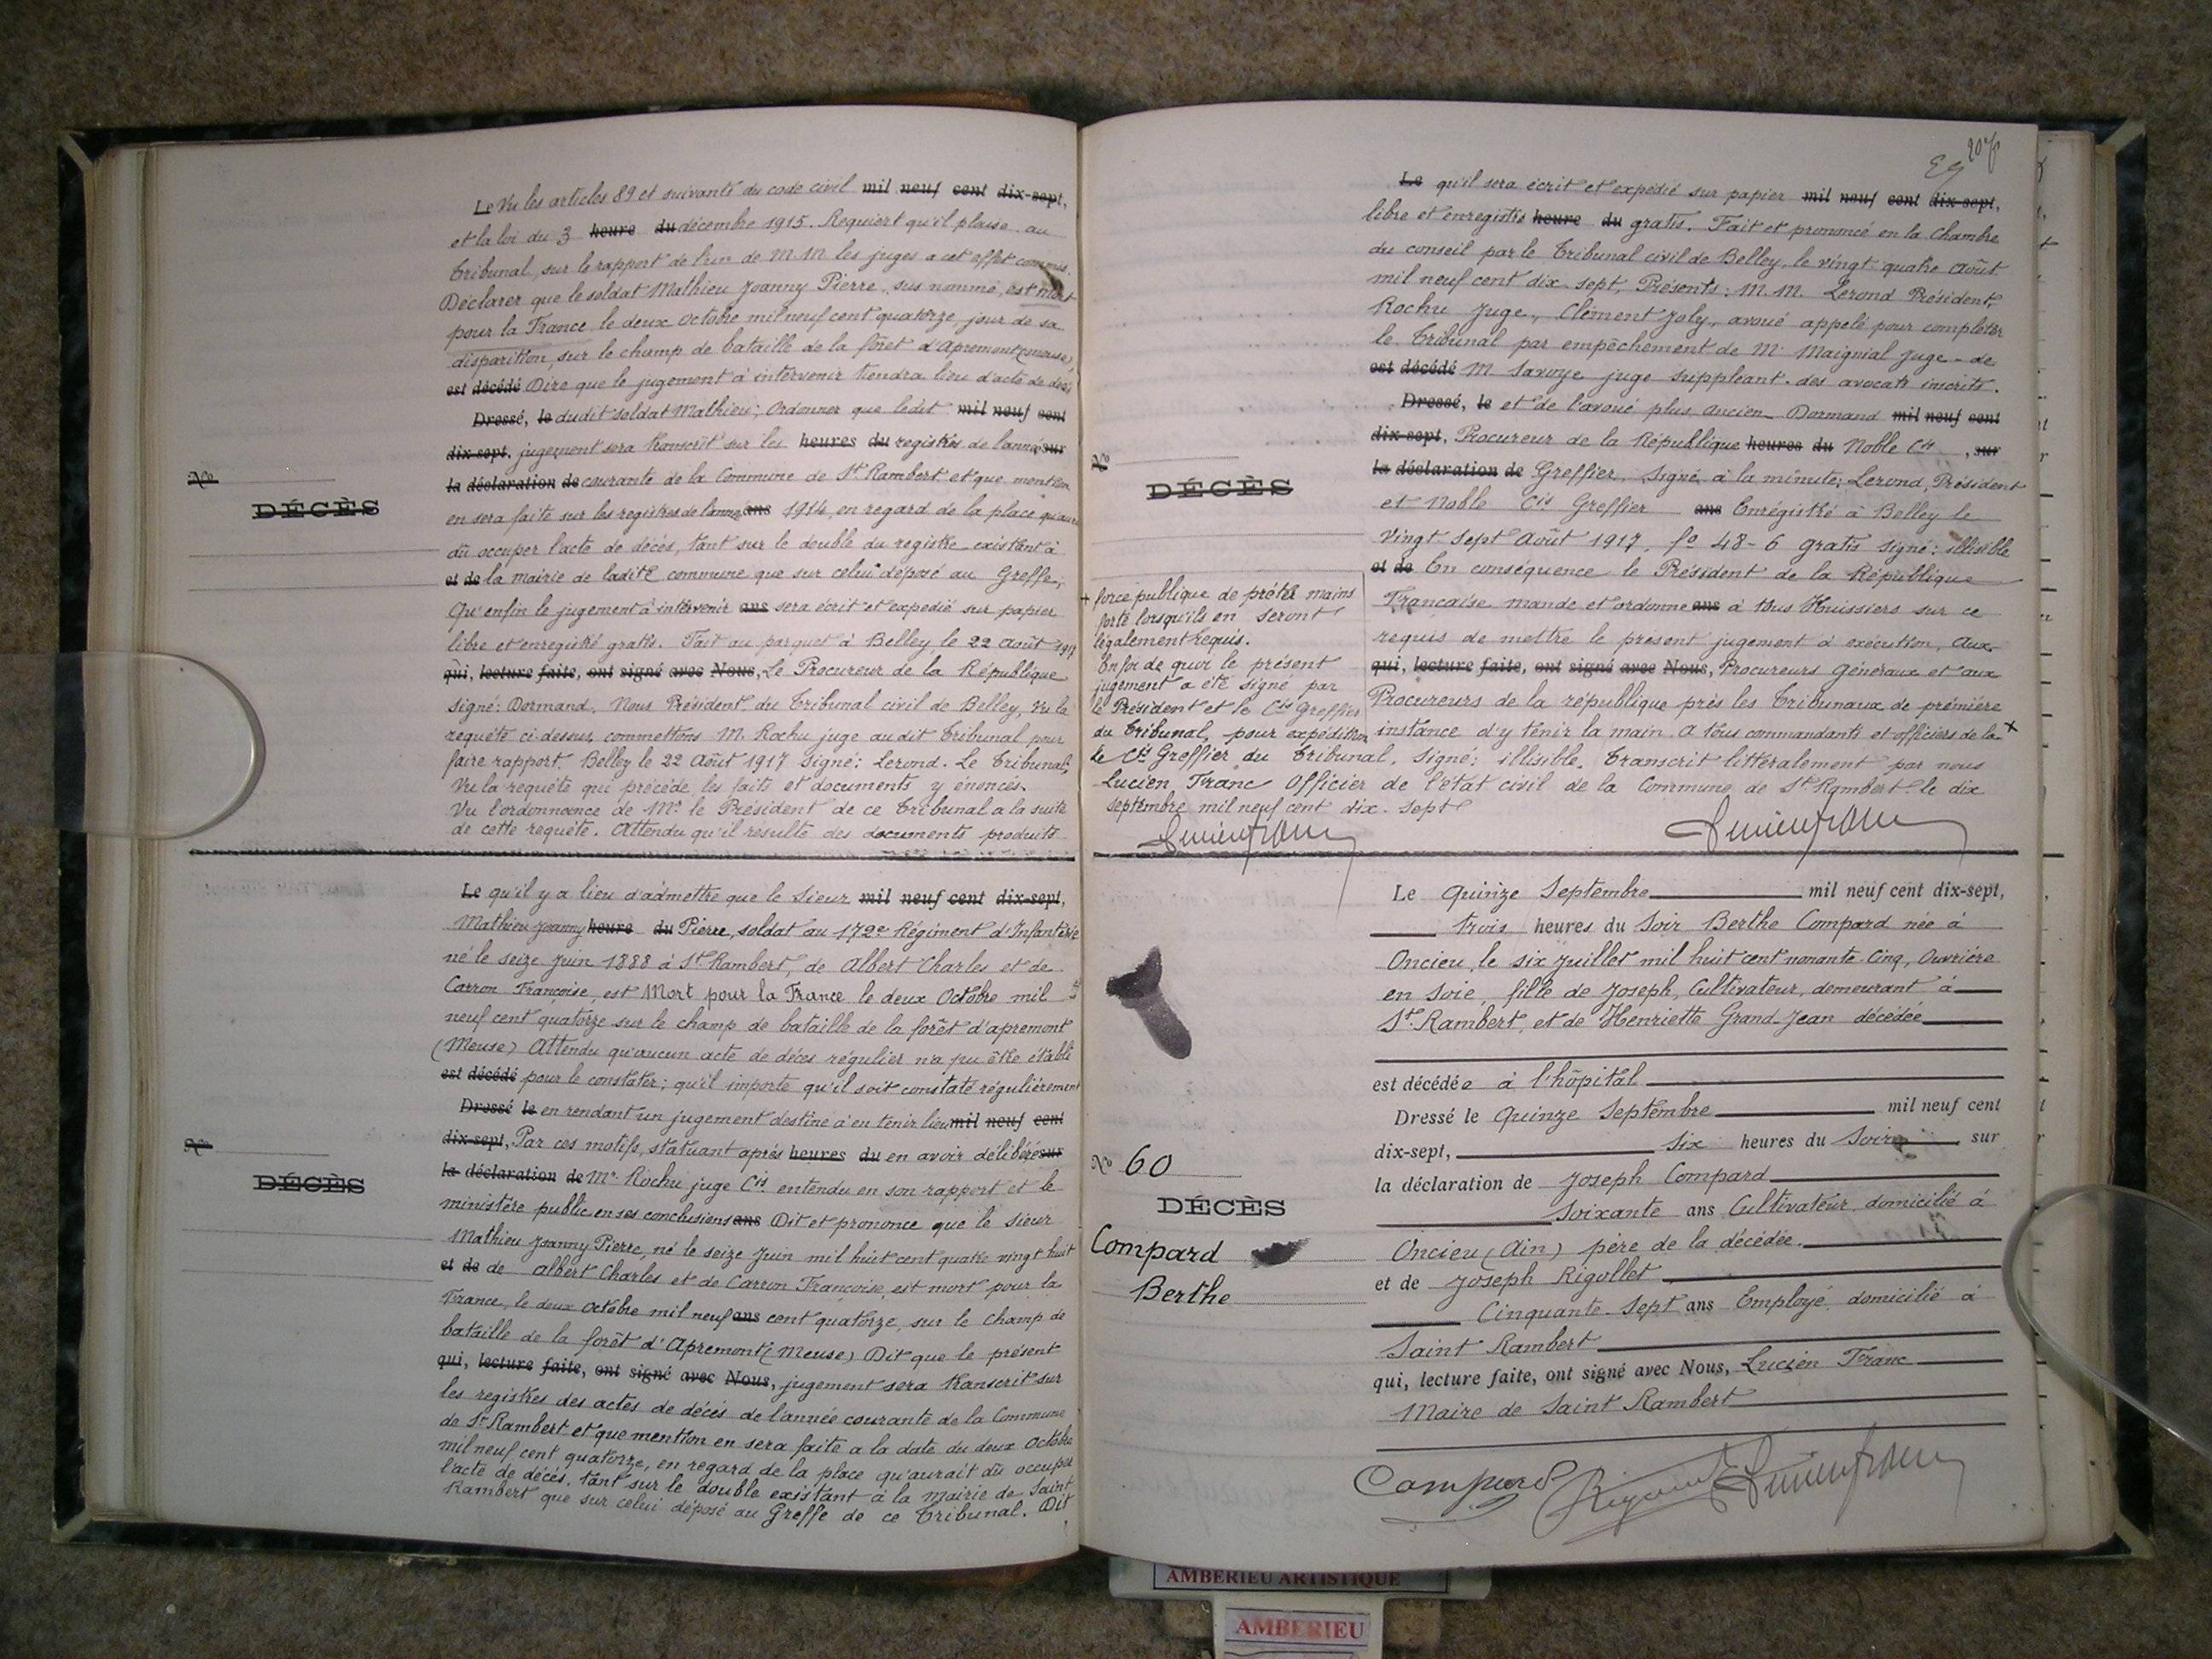 Le Vu les articles 89 et suivants du code civil mil neuf cent dix-sept,
et la loi du 3 heure du décembre 1915. Requiert qu'il plaise au
Tribunal, sur le rapport de l'un de M.M les juges a cet effet commis.
Déclarer que le soldat Mathieu Joanny Pierre, sus nommé, est mort
pour la France le deux Octobre mil neuf cent quatorze, jour de sa
disparition, sur le champ de bataille de la fôret d'Apremont (meuse)
est décédé Dire que le jugement à intervenir tiendra lieu d'acte de décés
Dressé, le dudit soldat Mathieu; Ordonner que ledit mil neuf cent
dix-sept, jugement sera transcrit sur les heures du registres de l'année sur
la déclaration de courante de la Commune de St Rambert et que mention
en sera faite sur les registres de l'année ans 1914, en regard de la place qu'aura
dû occuper l'acte de décés, tant sur le double du registre existant à
et de la mairie de ladite commune que sur celui déposé au Greffe;
Qu'enfin le jugement à intervenir ans sera écrit et expedié sur papier
libre et enregistré gratis. Fait au parquet à Belley, le 22 août 1917
qui, lecture faite, ont signé avec Nous, Le Procureur de la République
signé: Dormand. Nous Président du Tribunal civil de Belley, Vu la
requête ci-dessus, commettons M. Rochu juge audit Tribunal pour
faire rapport. Belley le 22 Août 1917 Signé: Lerond. Le Tribunal,
Vu la requête qui précède, les faits et documents y énoncés.
Vu l'ordonnance de Mr. le Président de ce Tribunal a la suite
de cette requête. Attendu qu'il resulte des documents produits
No
DÉCÈS
Le qu'il y a lieu d'admettre que le Sieur mil neuf cent dix-sept,
Mathieu Joanny heure du Pierre, soldat au 172e Régiment d'Infanterie
né le seize Juin 1888 à St Rambert, de Albert Charles et de
Carron Françoise, est Mort pour la France le deux Octobre mil
neuf cent quatorze sur le champ de bataille de la forêt d'apremont
(Meuse) Attendu qu'aucun acte de décés régulier n'a pu être établi
est décédé pour le constater; qu'il importe qu'il soit constaté régulièrement
Dressé le en rendant un jugement destiné à en tenir lieu mil neuf cent
dix-sept, Par ces motifs, statuant après heures du en avoir délibéré sur
la déclaration de Mr. Rochu juge Cis. entendu en son rapport et le
ministère public en ses conclusions ans Dit et prononce que le Sieur
Mathieu Joanny Pierre, né le seize Juin mil huit cent quatre vingt huit
et de de Albert Charles et de Carron Françoise, est mort pour la
France, le deux Octobre mil neuf ans cent quatorze, sur le champ de
bataille de la forêt d'Apremont (Meuse) Dit que le présent
qui, lecture faite, ont signé avec Nous, jugement sera transcrit sur
les registres des actes de décés de l'année courante de la Commune
de St Rambert et que mention en sera faite a la date du deux Octobre
mil neuf cent quatorze, en regard de la place qu'aurait dû occuper
l'acte de décés, tant sur le double existant à la mairie de Saint
Rambert que sur celui déposé au Greffe de ce Tribunal. Dit
No
DÉCÈS
207
Le qu'il sera écrit et expédié sur papier mil neuf cent dix-sept,
libre et enregistré heure du gratis. Fait et prononcé en la Chambre
du conseil par le Tribunal civil de Belley, le vingt quatre Août
mil neuf cent dix-sept, Présents: M.M. Lerond Président,
Rochu Juge, Clément Joly, avoué appelé pour compléter
le Tribunal par empêchement de Mr Maignial Juge - de
est décédé M. Savoye juge suppléant. des avocats inscrits.
Dressé, le et de l'avoué plus ancien Dormand mil neuf cent
dix-sept, Procureur de la République heures du Noble Cis, sur
la déclaration de Greffier, Signé à la minute; Lerond, Président
et Noble Cis Greffier ans Enrégistré à Belley le
Vingt Sept Août 1917, fo 48-6 gratis Signé: illisible
et de En conséquence le Président de la République
Francaise mande et ordonne ans à tous Huissiers sur ce
requis de mettre le présent jugement à exécution, aux
qui, lecture faite, ont signé avec Nous, Procureurs Généraux et aux
Procureurs de la république près les Tribunaux de première
instance d'y tenir la main. A tous commandants et officiers de la +
No
DÉCÈS
+ force publique de prêter mains
forte lorsqu'ils en seront
légalement requis.
En foi de quoi le présent
jugement a été signé par
le Président et le Cis Greffier
du Tribunal, pour expédition
Le Cis Greffier du Tribunal, Signé; illisible, Transcrit littéralement par nous
Lucien Franc Officier de l'état civil de la Commune de St Rambert le dix
septembre mil neuf cent dix-sept
Lucien Franc
Lucien Franc
Le Quinze Septembre mil neuf cent dix-sept,
trois heures du Soir Berthe Compard née à
Oncieu, le six Juillet mil huit cent nonante-Cinq, Ouvrière
en Soie, fille de Joseph, Cultivateur, demeurant à
St. Rambert, et de Henriette Grand-Jean décédée
est décédée à l'hôpital
Dressé le Quinze Septembre mil neuf cent
dix-sept, Six heures du Soir sur
la déclaration de Joseph Compard
Soixante ans Cultivateur, domicilié à
Oncieu (Ain) père de la décédée.
et de Joseph Rigollet
Cinquante-Sept ans Employé, domicilié à
Saint Rambert
qui, lecture faite, ont signé avec Nous, Lucien Franc
Maire de Saint Rambert
No 60
DÉCÈS
Compard
Berthe
Compard
Lucien Franc
AMBERIEU ARTISTIQUE
AMBERIEU